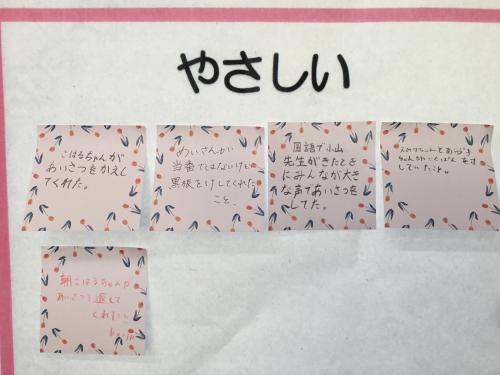 やさしい
こはるちゃんが
あいさつをかえし
てくれた。
めいさんが
当番ではないけど
黒板をけしてくれた
こと、
国語で小山
先生がきたとき
にみんなが大き
な声であいさつを
してた。
していたこと。
朝こはるちゃんが
あいさつを返して
くれた